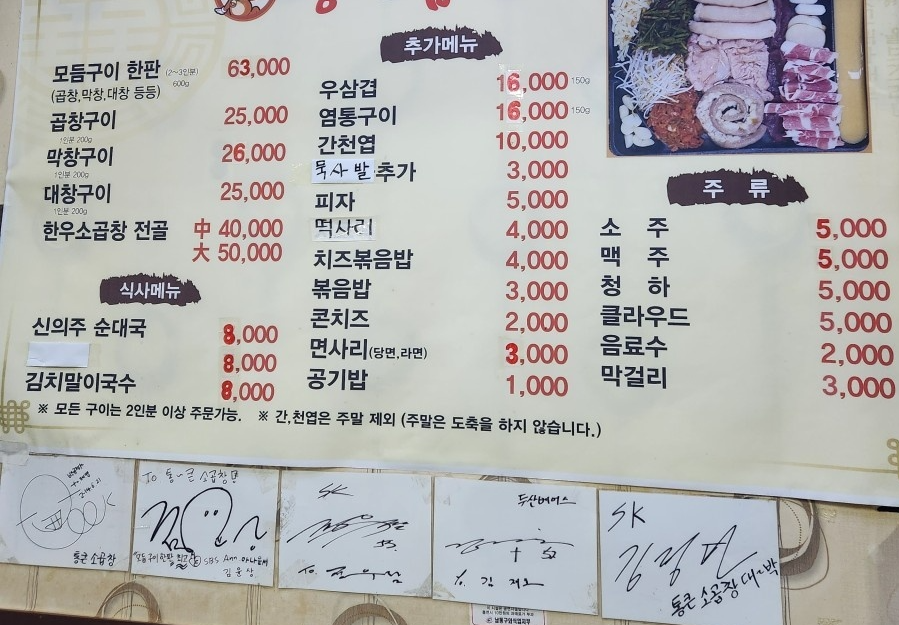 모듬구이 한판 (2~3인분) 600g 63,000
(곱창,막창,대창 등등)
곱창구이 25,000
1인분 200g
막창구이 26,000
1인분 200g
대창구이 25,000
1인분 200g
한우소곱창 전골 中 40,000
大 50,000
식사메뉴
신의주 순대국 8,000
8,000
김치말이국수 8,000
추가메뉴
우삼겹 16,000 150g
염통구이 16,000 150g
간천엽 10,000
묵사발 추가 3,000
피자 5,000
떡사리 4,000
치즈볶음밥 4,000
볶음밥 3,000
콘치즈 2,000
면사리(당면,라면) 3,000
공기밥 1,000
주 류
소 주 5,000
맥 주 5,000
청 하 5,000
클라우드 5,000
음료수 2,000
막걸리 3,000
※ 모든 구이는 2인분 이상 주문가능. ※ 간,천엽은 주말 제외 (주말은 도축을 하지 않습니다.)
통큰 소곱창
To 통큰 소곱창
SBS Ann 아나운서
김윤상
SK
To.
두산베어스
52
To.
SK
통큰 소곱창 대~박